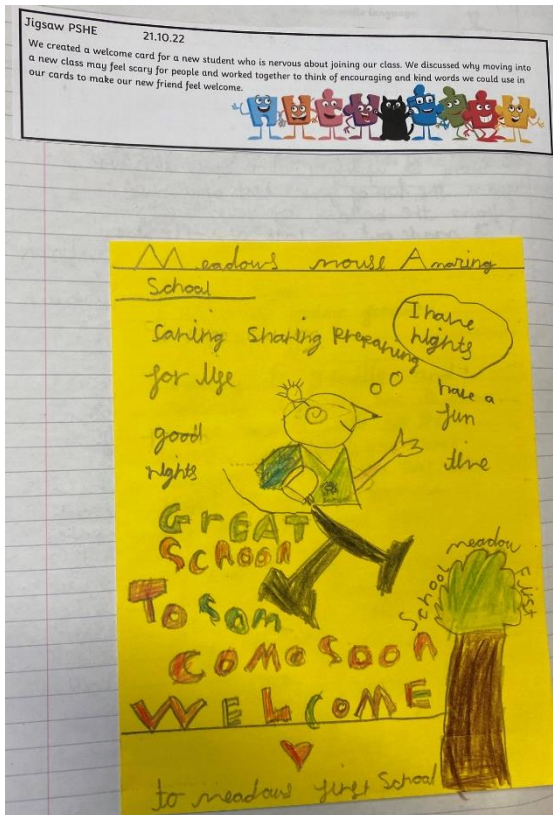 Jigsaw PSHE
21.10.22
We created a welcome card for a new student who is nervous about joining our class. We discussed why moving into
a new class may feel scary for people and worked together to think of encouraging and kind words we could use in
our cards to make our new friend feel welcome.
Meadows mouse Amazing
School
Caring Sharing Preparing
for life
I have
rights
have a
fun
time
good
rights
GrEAT
SCHOOl
To
COMe SOON
WELCOME
School meadow First
to meadows first School